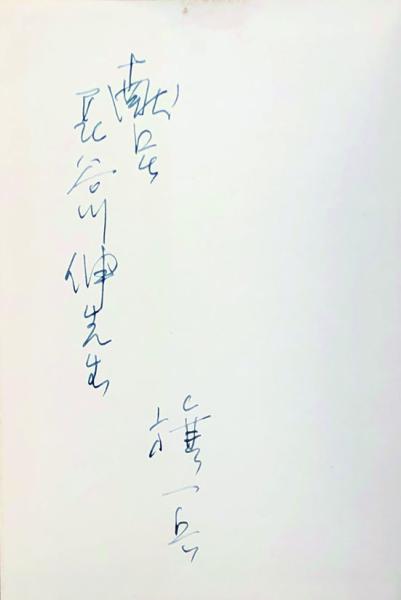 献呈
長谷川伸先生
旗一兵